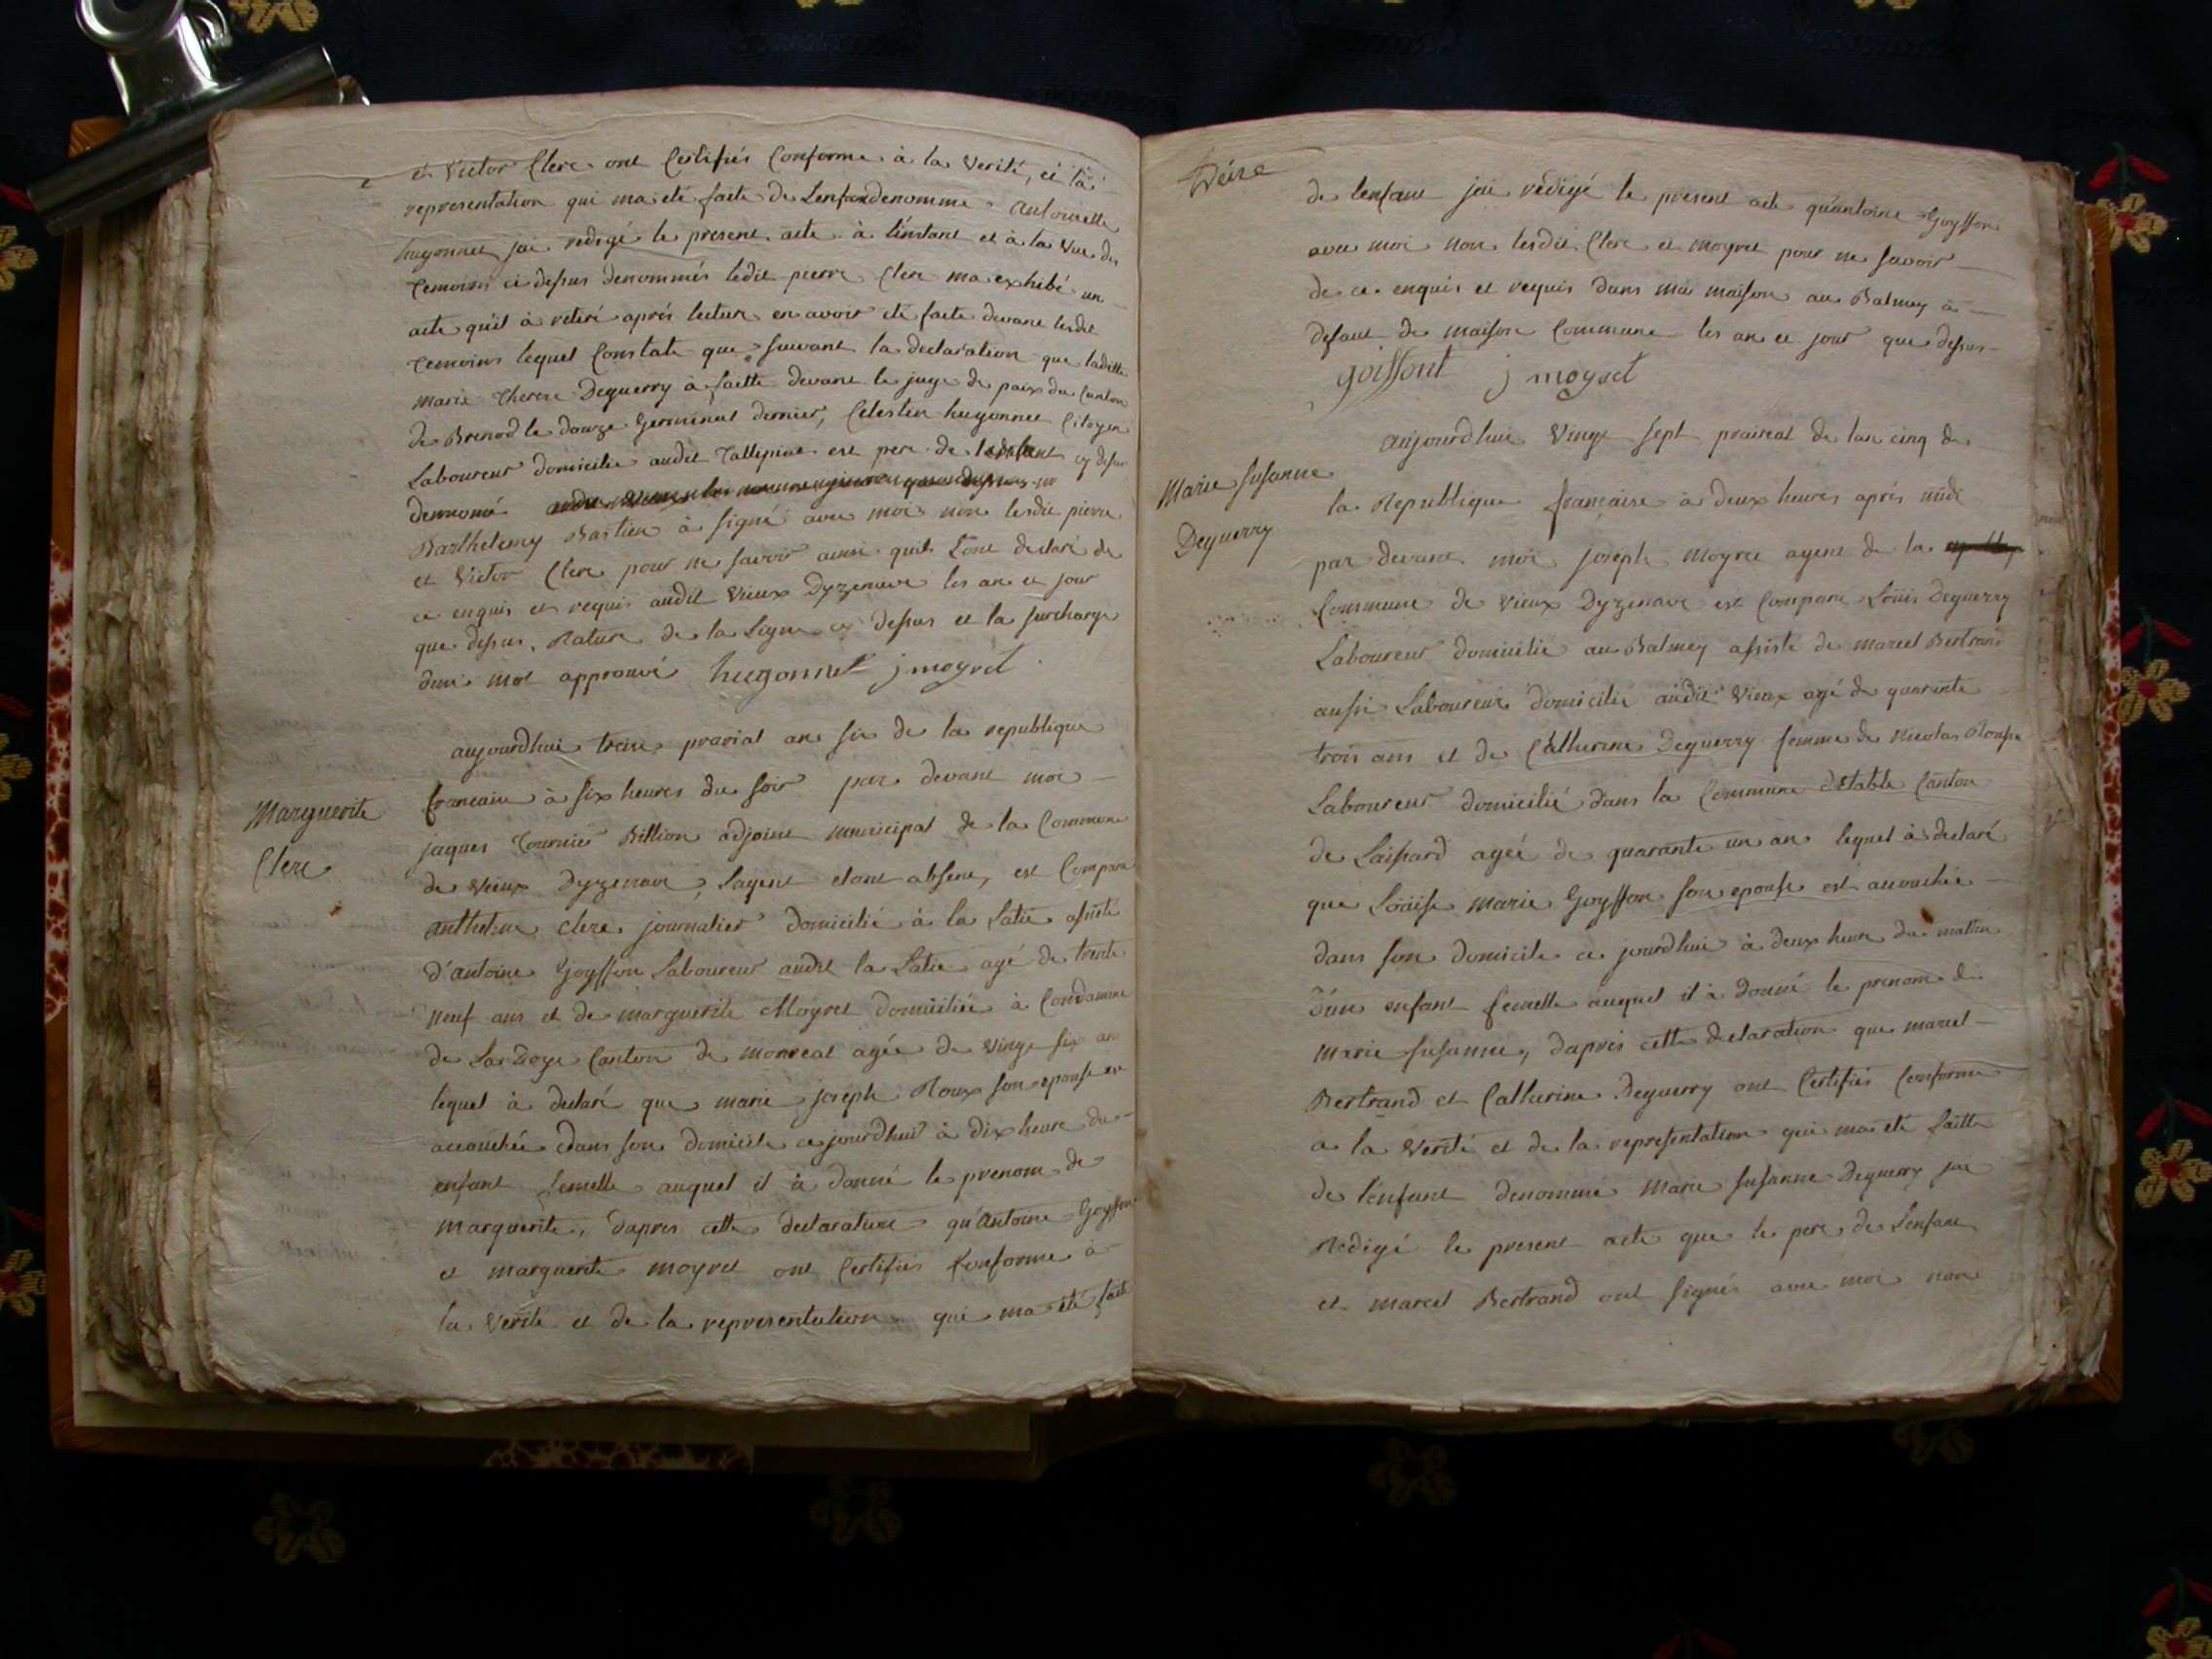 et Victor Clerc ont Certifiés Conforme à la Verité, et la
representation qui ma eté faite de Lenfant denommé Antoinette
hugonnet jai redigé le present acte à linstant et à la Vue des
temoins ci dessus denommés ledit pierre Clerc ma exhibé un
acte quil à retiré aprés lecture en avoir eté faite devant lesdit
temoins lequel Constate que suivant la declaration que laditte
marie Therese Deguerry à faitte devant le juge de paix du Canton
de Brenod le douze Germinal dernier, Celestin hugonnet Citoyen
Laboureur domicilié audit Tallipiat est pere de lenfant cy dessus
denommé
Barthelemy Bastien à signé avec moi non lesdit pierre
et Victor Clerc pour ne savoir ainsi quils Lont declaré de
ce enquis et requis audit Vieux Dyzenave les an et jour
que dessus. Rature de la Ligne cy dessus et la surcharge
dun mot approuvé hugonnet j moyret
aujourdhui treize prarial an six de la republique
francaise à six heures du soir par devant moi
Marguerite
Clerc
jaques Tournier Billion adjoint municipal de la Commune
de Vieux Dyzenave, Lagent etant absent, est Comparu
anthelme Clerc journalier domicilié à la Latie assisté
d'antoine Goyffon Laboureur audit la Latie agé de trente
neuf ans et de marguerite Moyret domiciliée à Condamine
de La Doye Canton de monreal agée de vingt six an
lequel à declaré que marie joseph Roux son epouse est
accouchée dans son domicile ce jourdhui à dix heure du
enfant femelle auquel il à donné le prenom de
marguerite, dapres cette declarature qu'Antoine Goyffon
et marguerite moyret ont Certifiés Conforme à
la Verité et de la representation qui ma eté faite
Treize
de lenfant jai redigé le present acte qu'antoine Goyffon
avec moi non lesdit Clerc et moyret pour ne savoir
de ce enquis et requis dans ma maison au Balmey à
defaut de maison Commune les an et jour que dessus
goiffont j moyret
aujourdhui Vingt sept prairial de lan cinq de
Marie Susanne
Deguerry
la Republique francaise à deux heures aprés midi
par devant moi joseph Moyret agent de la
Commune de Vieux Dyzenave est Comparu Loüis Deguerry
Laboureur domicilié au Balmey assisté de marcel Bertrand
aussi Laboureur domicilié audit Vieux agé de quarante
trois ans et de Catherine Deguerry femme de Nicolas Rousse
Laboureur domicilié dans la Commune dEtable Canton
de Laissard agée de quarante un an lequel à declaré
que Loüise Marie Goyffon son epouse est accouchée
dans son domicile ce jourdhui à deux heure du matin
d'un enfant femelle auquel il à donné le prenom de
Marie susanne, daprés cette declaration que marcel
Bertrand et Catherine Deguerry ont Certifiés Conforme
a la Verité et de la representation qui ma eté faitte
de lenfant denommé Marie susanne Deguerry jai
redigé le present acte que le pere de Lenfant
et marcel Bertrand ont signés avec moi non